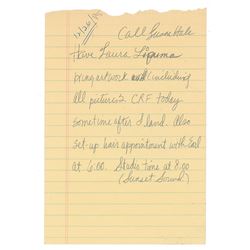 12/26/95
Call Susan Hale
Have Laura
bring artwork and (including
all pictures 2 CRF today
sometime after I land. Also
set-up hair appointment with Earl
at 6:00. Studio time at 8:00
(Sunset Sound)